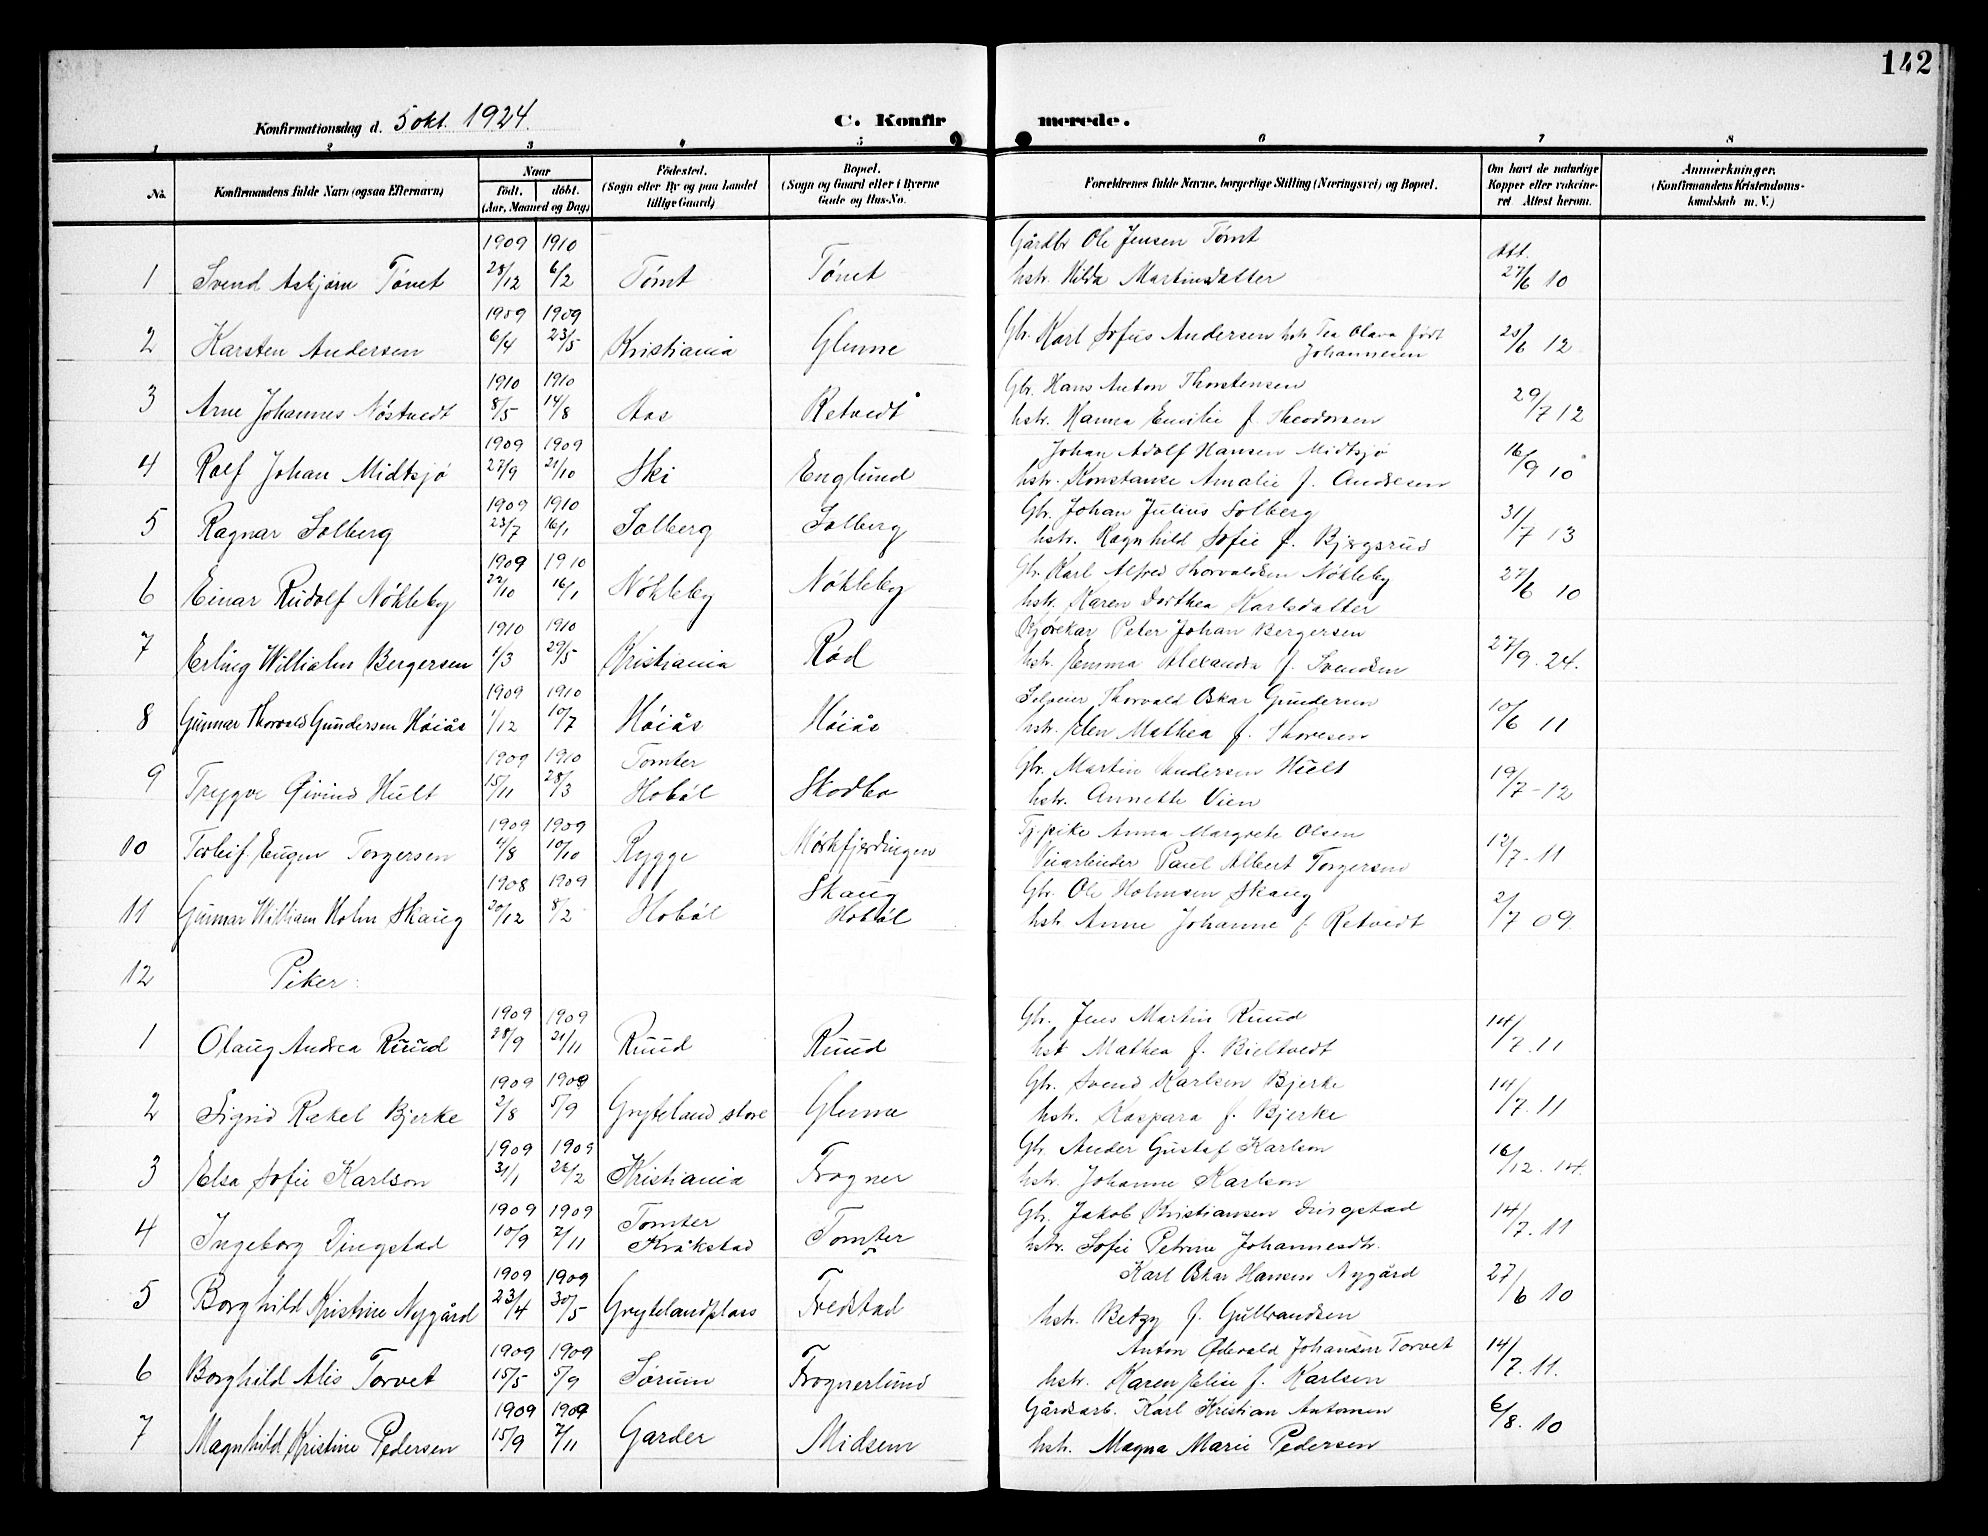 142
Konfirmationsdag d. 5 okt. 1924.
C. Konfirmerede.
1 2 3 4 5 6 7 8
No. Konfirmandens fulde Navn (ogsaa Efternavn) Naar født, døbt. (Aar, Maaned og Dag) Fødested. (Sogn eller By og paa Landet tillige Gaard) Bopæl. (Sogn og Gaard eller i Byerne Gade og Hus-No. Forældrenes fulde Navne, borgerlige Stilling (Næringsvei) og Bopæl. Om havt de naturlige Kopper eller vakcineret. Attest herom. Anmærkninger. (Konfirmandens Kristendomskundskab m. V.)
1909 1910 Gårdbr Ole Jensen Tømt Att.
1 Svend Asbjørn Tømt 28/12 6/2 Tømt Tømt hstr. Hilda Martinsdatter 27/6 10
1909 1909
2 Karsten Andersen 6/4 23/5 Kristiania Glenne Gbr. Karl Sofus Andersen hstr Tea Olava født Johannesen 25/6 12
1910 1910 Gbr. Hans Anton Thorstensen
3 Arne Johannes Nøstvedt 8/5 14/8 Aas Retvedt hstr. Hanna Emilie f. Theodorsen 29/7 12
1909 1909 Johan Adolf Hansen Midtsjø
4 Rolf Johan Midtsjø 27/9 21/10 Ski Englund hstr. Konstanse Amalie f. Andresen 16/9 10
1909 1910 Gbr. Johan Julius Solberg
5 Ragnar Solberg 23/7 16/1 Solberg Solberg hstr. Ragnhild Sofie f. Bjergsrud 31/7 13
1909 1910 Gbr. Karl Alfred Thorvaldsen Nøkleby
6 Einar Rudolf Nøkleby 22/10 16/1 Nøkleby Nøkleby hstr. Karen Dorthea Karlsdatter 27/6 10
1910 1910 Kjørekar Peter Johan Bergersen
7 Erling Willialm Bergersen 4/3 29/5 Kristiania Rød hstr. Emma Alexandra f. Svendsen 27/9. 24.
1909 1910 Selveier Thorvald Oskar Gundersen
8 Gunnar Thorvald Gundersen Høiås 1/12 10/7 Høiås Høiås hstr. Elen Mathea f. Thoresen 10/6 11
1909 1910 Tomter Gbr. Martin Andersen Hult
9 Trygve Øivind Hult 15/11 28/3 Hobøl Skodbo hstr. Annette Vien 19/7-12
1909 1909 Tj.pike Anna Margrete Olsen
10 Torleif Eugen Torgersen 4/8 10/10 Rygge Mørkfjerdingen Paul Albert Torgersen 12/7.11
1908 1909 Skaug Gbr. Ole Holmsen Skaug
11 Gunnar William Holm Skaug 20/12 8/2 Hobøl Hobøl hstr. Anne Johanne f. Retvedt 2/7 09.
12 Piker:
1909 1909 Gbr. Jens Martin Ruud
1 Olaug Andrea Ruud 28/9 21/11 Ruud Ruud hst Mathea f. Bieltvedt 14/7.11
1909 1909 Gbr. Svend Karlsen Bjerke
2 Sigrid Rakel Bjerke 2/8 5/9 Gryteland store Glenne hstr. Kaspara f. Bjerke 14/7.11
1909 1909 Gbr. Ander Gustaf Karlson
3 Elsa Sofie Karlson 31/1 28/2 Kristiania Frogner hstr. Johanne Karlson 16/12.14.
1909 1909 Tomter Gbr. Jakob Kristiansen Dingstad
4 Ingeborg Dingstad 10/9 7/11 Kråkstad Tomter hstr. Sofie Petrine Johannesdtr. 14/7.11
1909 1909 Karl Oskar Hansen Nygård
5 Borghild Kristine Nygård 23/4 30/5 Grytelandplass Fredstad hstr. Betzy f. Gulbrandsen 27/6 10
1909 1909 Anton Edevald Johansen Torvet
6 Borghild Alis Torvet 15/5 5/9 Sørum Frognerlund hstr. Karen Elise f. Karlsen 14/7.11.
1909 1909 Gårdsarb. Karl Kristian Antonsen
7 Magnhild Kristine Pedersen 15/9 7/11 Garder Midsem hstr. Magna Marie Pedersen 6/8.10